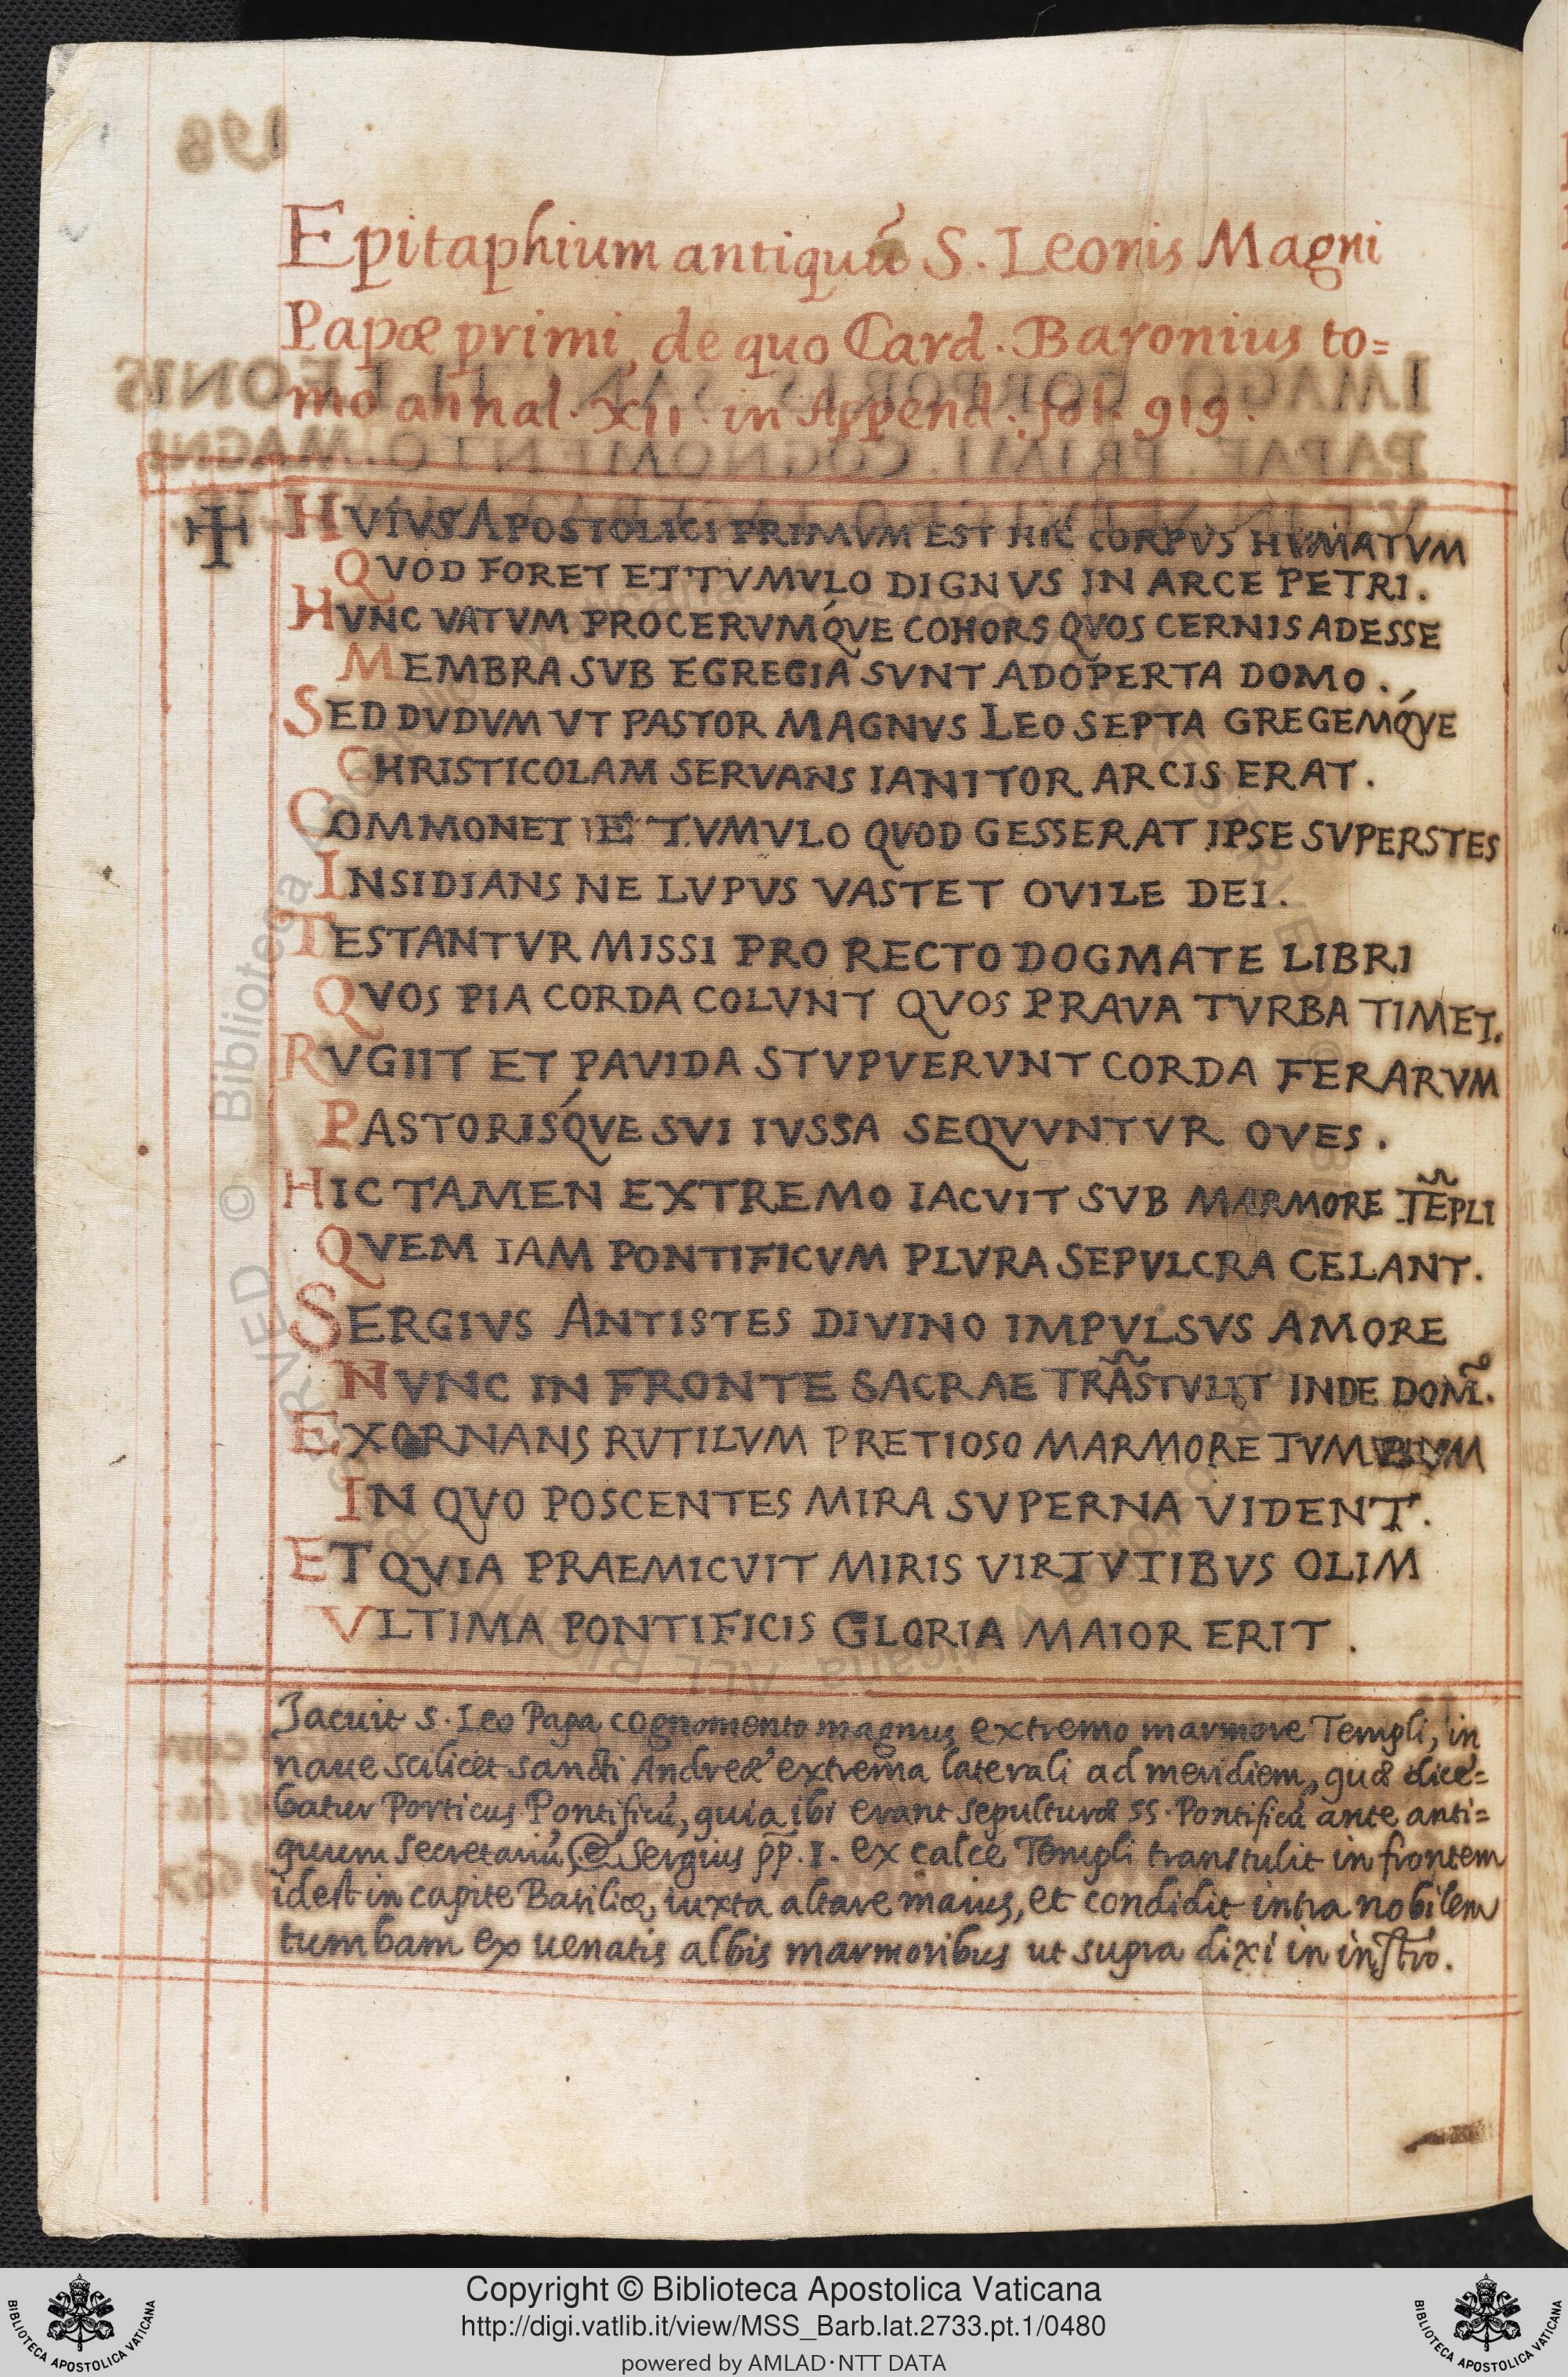 Epitaphium antiquú S. Leonis Magni
Papæ primi, de quo Card. Baronius to=
mo annal. XII. in Append. fol. 919.
HVIVS APOSTOLICI PRIMVM EST HIC CORPVS HVMATVM
QVOD FORET ET TVMVLO DIGNVS IN ARCE PETRI.
HVNC VATVM PROCERVMQ́VE COHORS QVOS CERNIS ADESSE
MEMBRA SVB EGREGIA SVNT ADOPERTA DOMO.
SED DVDVM VT PASTOR MAGNVS LEO SEPTA GREGEMQ́VE
CHRISTICOLAM SERVANS IANITOR ARCIS ERAT.
COMMONET E TVMVLO QVOD GESSERAT IPSE SVPERSTES
INSIDIANS NE LVPVS VASTET OVILE DEI.
TESTANTVR MISSI PRO RECTO DOGMATE LIBRI
QVOS PIA CORDA COLVNT QVOS PRAVA TVRBA TIMET.
RVGIIT ET PAVIDA STVPVERVNT CORDA FERARVM
PASTORISQ́VE SVI IVSSA SEQVVNTVR OVES.
HIC TAMEN EXTREMO IACVIT SVB MARMORE TẼPLI
QVEM IAM PONTIFICVM PLVRA SEPVLCRA CELANT.
SERGIVS ANTISTES DIVINO IMPVLSVS AMORE
NVNC IN FRONTE SACRAE TRÃSTVLIT INDE DOM̃.
EXORNANS RVTILVM PRETIOSO MARMORE TVMVLVM
IN QVO POSCENTES MIRA SVPERNA VIDENT.
ET QVIA PRAEMICVIT MIRIS VIRTVTIBVS OLIM
VLTIMA PONTIFICIS GLORIA MAIOR ERIT.
Jacuit S. Leo Papa cognomento magnus extremo marmore Templi, in
naue scilicet sancti Andreæ extrema laterali ad meridiem, quæ dice=
batur Porticus Pontificú, quia ibi erant sepulturæ SS. Pontificú ante anti=
quum secretariú, @ Sergius p̄p̄. I. ex calce Templi transtulit in frontem
idest in capite Basilicæ, iuxta altare maius, et condidit intra nobilem
tumbam ex uenatis albis marmoribus ut supra dixi in instro.
Copyright © Biblioteca Apostolica Vaticana
http://digi.vatlib.it/view/MSS_Barb.lat.2733.pt.1/0480
powered by AMLAD·NTT DATA
BIBLIOTECA APOSTOLICA VATICANA
BIBLIOTECA APOSTOLICA VATICANA